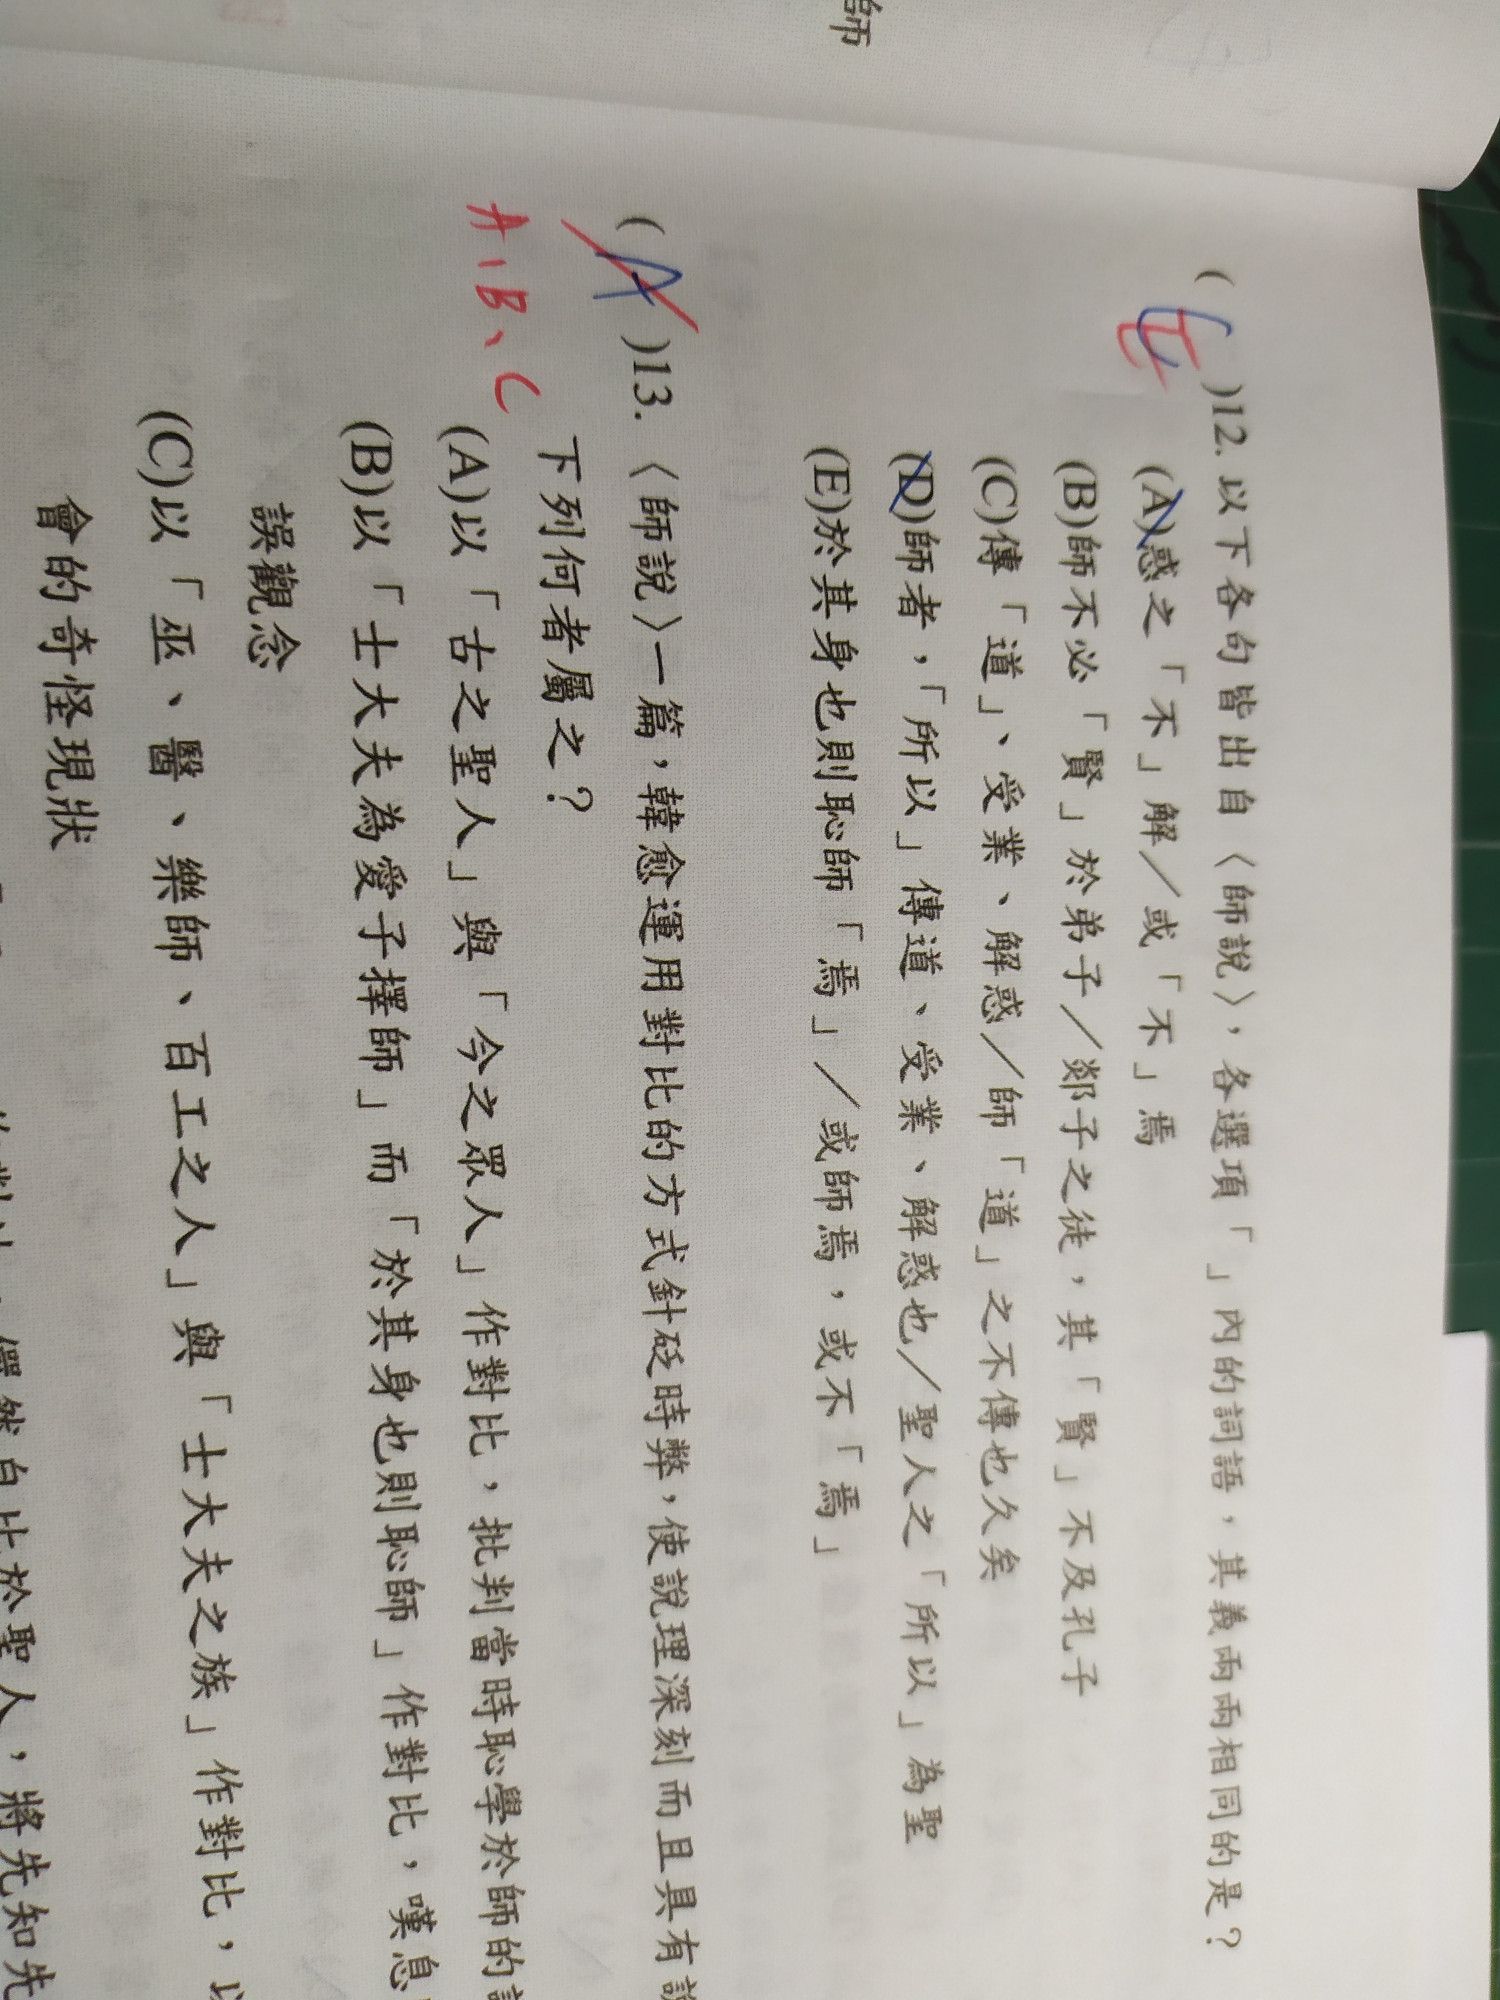 師
( E )12. 以下各句皆出自〈師說〉，各選項「」內的詞語，其義兩兩相同的是？
(A)惑之「不」解／或「不」焉
(B)師不必「賢」於弟子／郯子之徒，其「賢」不及孔子
(C)傳「道」、受業、解惑／師「道」之不傳也久矣
(D)師者，「所以」傳道、受業、解惑也／聖人之「所以」為聖
(E)於其身也則恥師「焉」／或師焉，或不「焉」
( A )13.〈師說〉一篇，韓愈運用對比的方式針砭時弊，使說理深刻而且具有說
A、B、C
下列何者屬之？
(A)以「古之聖人」與「今之眾人」作對比，批判當時恥學於師的
(B)以「士大夫為愛子擇師」而「於其身也則恥師」作對比，嘆息
誤觀念
(C)以「巫、醫、樂師、百工之人」與「士大夫之族」作對比，以
會的奇怪現狀
儼然自比於聖人，將先知先